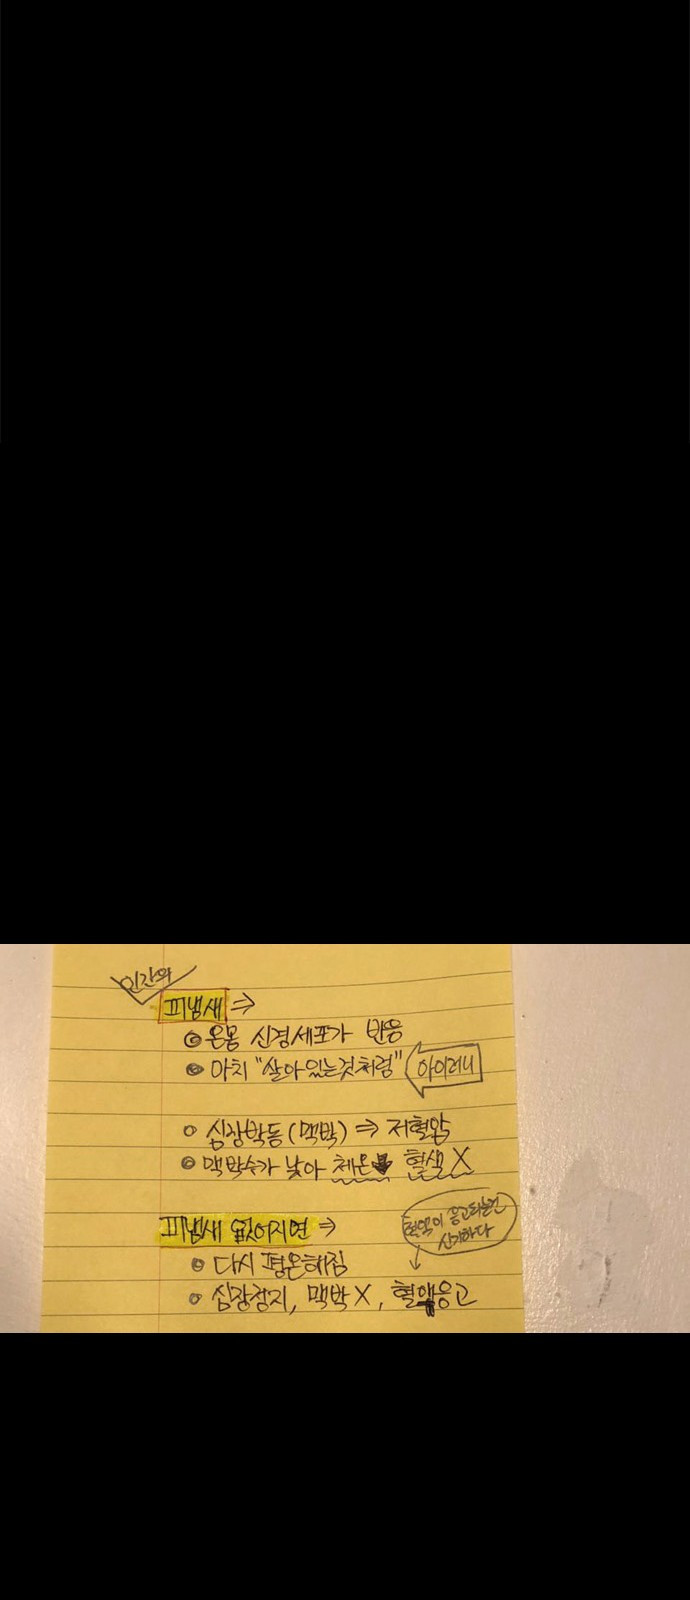 인간의
피냄새 ⇒
온몸 신경세포가 반응
마치 "살아있는것처럼" 아이러니
심장박동(맥박) ⇒ 저혈압
맥박수가 낮아 체온 혈색 X
피냄새 없어지면 ⇒
혈액이 응고되는건
신기하다
다시 평온해짐
심장정지, 맥박 X, 혈액응고